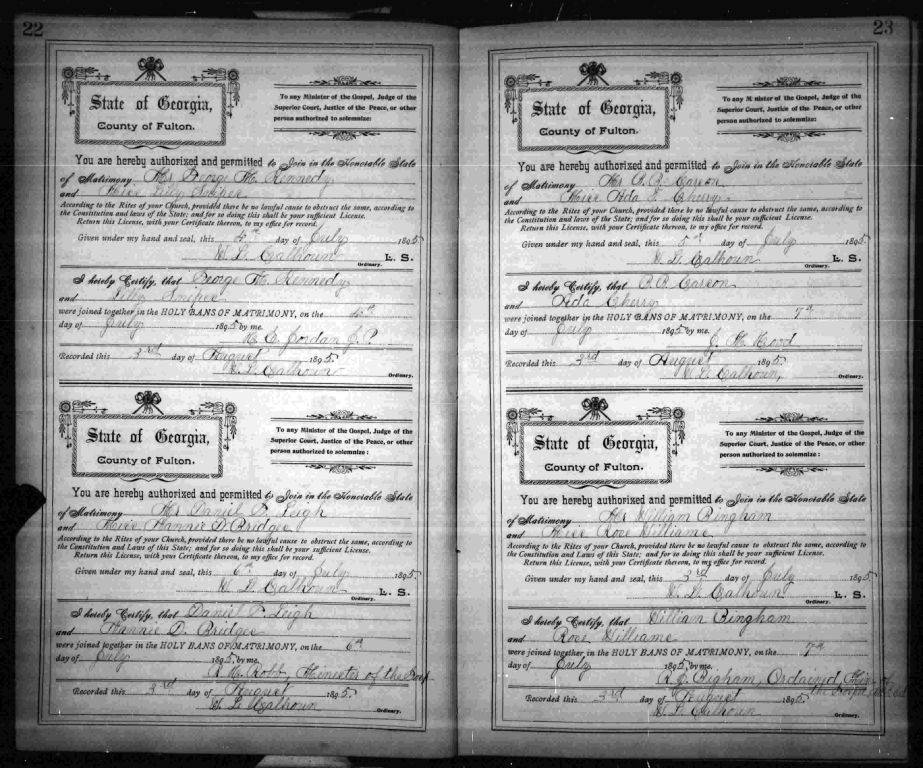 22
State of Georgia,
County of Fulton.
To any Minister of the Gospel, Judge of the
Superior Court, Justice of the Peace, or other
person authorized to solemnize:
You are hereby authorized and permitted to Join in the Honorable State
of Matrimony Mr George H. Kennedy
and Miss Lily Snipes
According to the Rites of your Church, provided there be no lawful cause to obstruct the same, according to
the Constitution and laws of the State; and for so doing this shall be your sufficient License.
Return this License, with your Certificate thereon, to my office for record.
Given under my hand and seal, this day of July 1895
W. L. Calhoun L. S.
Ordinary.
I hereby Certify, that George H. Kennedy
and Lily Snipes
were joined together in the HOLY BANS OF MATRIMONY, on the
day of July 1895 by me.
Jordan J. P.
Recorded this 3rd day of August 1895.
W. L. Calhoun
Ordinary.
State of Georgia,
County of Fulton.
To any Minister of the Gospel, Judge of the
Superior Court, Justice of the Peace, or other
person authorized to solemnize:
You are hereby authorized and permitted to Join in the Honorable State
of Matrimony Mr Daniel Leigh
and Miss Fannie D. Bridges
According to the Rites of your Church, provided there be no lawful cause to obstruct the same, according to
the Constitution and Laws of this State; and for so doing this shall be your sufficient License.
Return this License, with your Certificate thereon, to my office for record.
Given under my hand and seal, this 6th day of July 1895
W. L. Calhoun L. S.
Ordinary.
I hereby Certify, that Daniel Leigh
and Fannie D. Bridges
were joined together in the HOLY BANS OF MATRIMONY, on the 6th
day of July 1895, by me.
Minister of the
Recorded this 3rd day of August 1895.
W. L. Calhoun
Ordinary.
23
State of Georgia,
County of Fulton.
To any Minister of the Gospel, Judge of the
Superior Court, Justice of the Peace, or other
person authorized to solemnize:
You are hereby authorized and permitted to Join in the Honorable State
of Matrimony Mr Carson
and Miss Ada Cherry
According to the Rites of your Church, provided there be no lawful cause to obstruct the same, according to
the Constitution and laws of the State; and for so doing this shall be your sufficient License.
Return this License, with your Certificate thereon, to my office for record.
Given under my hand and seal, this 5th day of July 1895
W. L. Calhoun L. S.
Ordinary.
I hereby Certify, that Carson
and Ada Cherry
were joined together in the HOLY BANS OF MATRIMONY, on the 7th
day of July 1895 by me.
J. H. Wood
Recorded this 3rd day of August 1895
W. L. Calhoun,
Ordinary.
State of Georgia,
County of Fulton.
To any Minister of the Gospel, Judge of the
Superior Court, Justice of the Peace, or other
person authorized to solemnize:
You are hereby authorized and permitted to Join in the Honorable State
of Matrimony Mr William Bingham
and Miss Rose Williams
According to the Rites of your Church, provided there be no lawful cause to obstruct the same, according to
the Constitution and Laws of this State; and for so doing this shall be your sufficient License.
Return this License, with your Certificate thereon, to my office for record.
Given under my hand and seal, this 3rd day of July 1895
W. L. Calhoun L. S.
Ordinary.
I hereby Certify, that William Bingham
and Rose Williams
were joined together in the HOLY BANS OF MATRIMONY, on the 7th
day of July 1895, by me.
R. J. Bigham, Ordained
Recorded this 3rd day of August 1895
W. L. Calhoun
Ordinary.